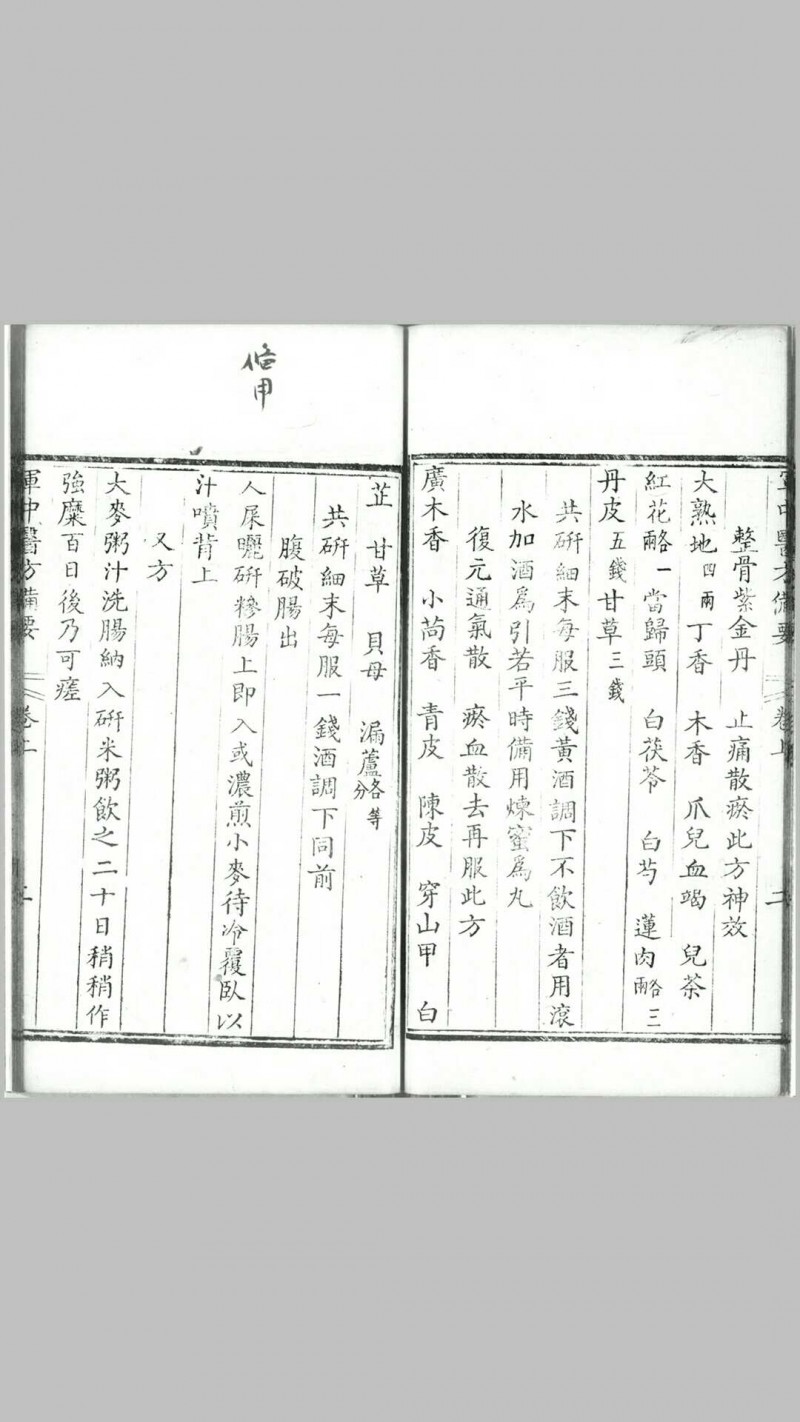 軍中醫方備要 卷上 二
整骨紫金丹 止痛散瘀此方神效
大熟地四兩 丁香 木香 爪兒血竭 兒茶
紅花各一兩 當歸頭 白茯苓 白芍 蓮肉各三兩
丹皮五錢 甘草三錢
共硏細末每服三錢黃酒調下不飲酒者用滾
水加酒爲引若平時備用煉蜜爲丸
復元通氣散 瘀血散去再服此方
廣木香 小茴香 青皮 陳皮 穿山甲 白
芷 甘草 貝母 漏蘆各等分
共硏細末每服一錢酒調下同前
腹破腸出
人屎曬硏糝腸上即入或濃煎小麥待冷覆臥以
汁噴背上
又方
大麥粥汁洗腸納入硏米粥飲之二十日稍稍作
強糜百日後乃可瘥
軍中醫方備要 卷上